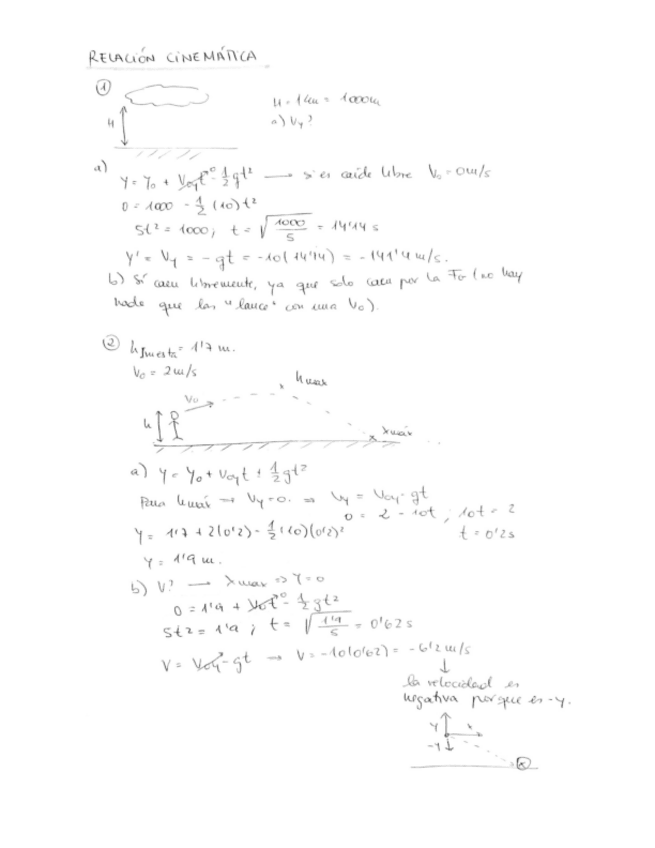 RELACIÓN CINEMÁTICA
①
H = 1km = 1000m
H
a) Vy?
a)
y = y₀ + V₀yt⁰ - 1/2 gt² → si es caída libre V₀ = 0m/s
0 = 1000 - 1/2 (10)t²
5t² = 1000; t = √(1000/5) = 14'14 s
y' = Vy = -gt = -10(14'14) = -141'4 m/s.
b) Sí caen libremente, ya que solo caen por la (no hay
nada que las "lance" con una V₀).
②
V₀ = 2m/s
h máx
V₀
h
x máx
a) y = y₀ + V₀yt + 1/2 gt²
Para h máx → Vy = 0. ⇒ Vy = V₀y - gt
0 = 2 - 10t ; 10t = 2
y = 1'7 + 2(0'2) - 1/2 (10)(0'2)²
t = 0'2s
y = 1'9 m.
b) V? → x max ⇒ y = 0
0 = 1'9 + V₀t⁰ - 1/2 gt²
5t² = 1'9 ; t = √(1'9/5) = 0'62 s
V = V₀y - gt → V = -10(0'62) = -6'2 m/s
↓
la velocidad es
negativa porque es -y.
y
x
-y